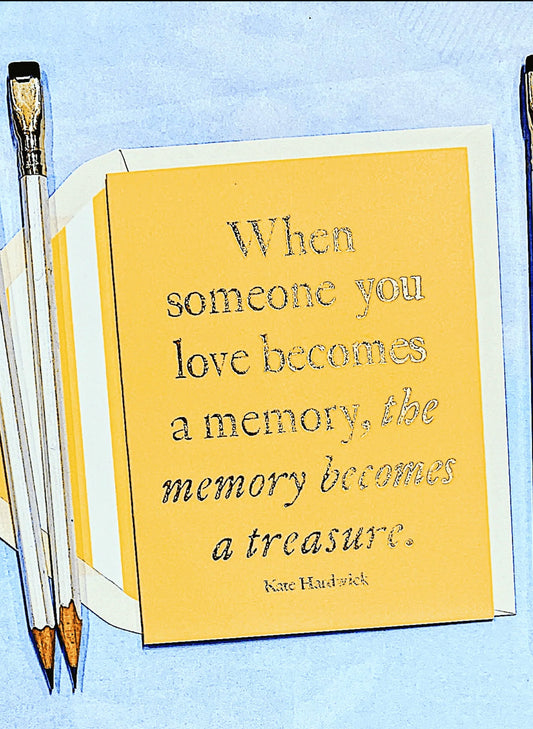 When
someone you
love becomes
a memory, the
memory becomes
a treasure.
Kate Hardwick